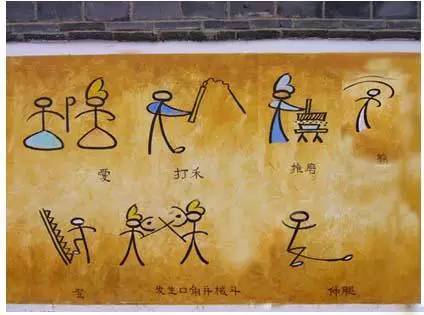 愛 打禾 推磨
登 发生口角并械斗 伸腿